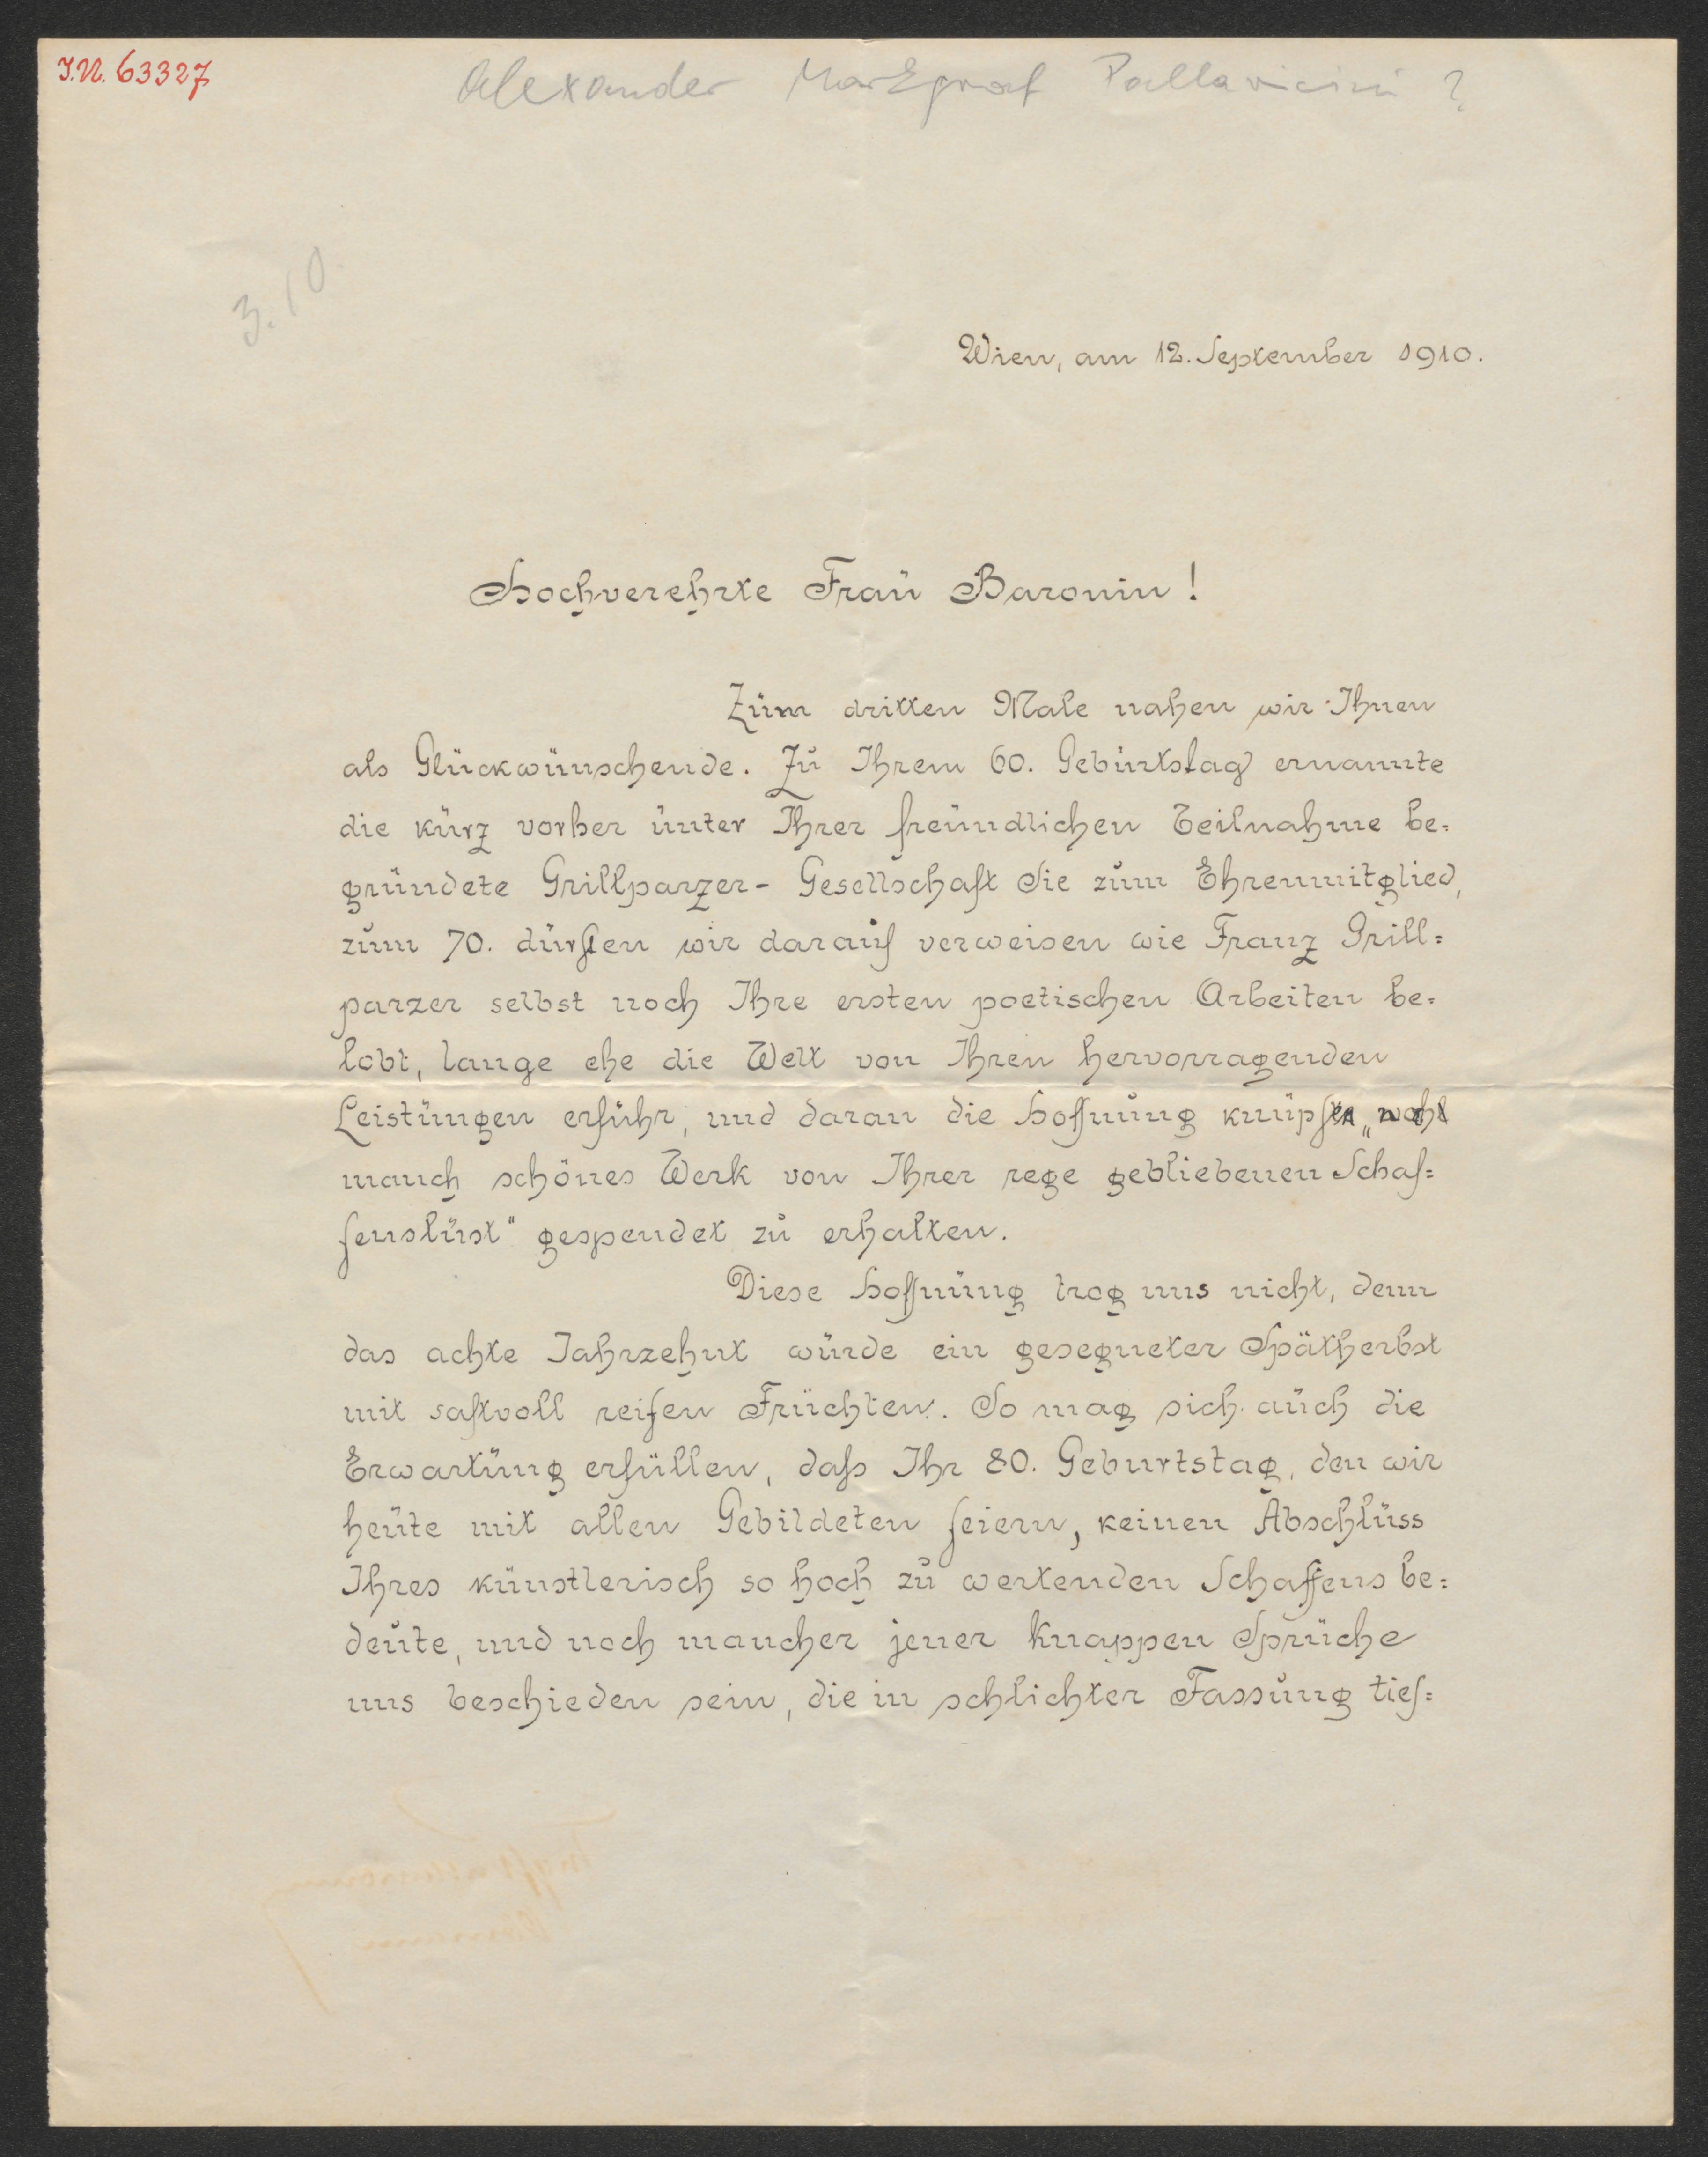 I.N. 63327
Alexander Markgraf Pallavicini ?
3.10.
Wien, am 12. September 1910.
Hochverehrte Frau Baronin!
Zum dritten Male nahen wir Ihnen
als Glückwünschende. Zu Ihrem 60. Geburtstag ernannte
die kurz vorher unter Ihrer freundlichen Teilnahme be=
gründete Grillparzer- Gesellschaft Sie zum Ehrenmitglied,
zum 70. durften wir darauf verweisen wie Franz Grill=
parzer selbst noch Ihre ersten poetischen Arbeiten be=
lobt, lange ehe die Welt von Ihren hervorragenden
Leistungen erfuhr, und daran die Hoffnung knüpfen „wohl
manch schönes Werk von Ihrer rege gebliebenen Schaf=
fenslust" gespendet zu erhalten.
Diese Hoffnung trog uns nicht, denn
das achte Jahrzehnt wurde ein gesegneter Spätherbst
mit saftvoll reifen Früchten. So mag sich auch die
Erwartung erfüllen, dass Ihr 80. Geburtstag, den wir
heute mit allen Gebildeten feiern, keinen Abschluss
Ihres künstlerisch so hoch zu wertenden Schaffens be=
deute, und noch mancher jener knappen Sprüche
uns beschieden sein, die in schlichter Fassung tief=